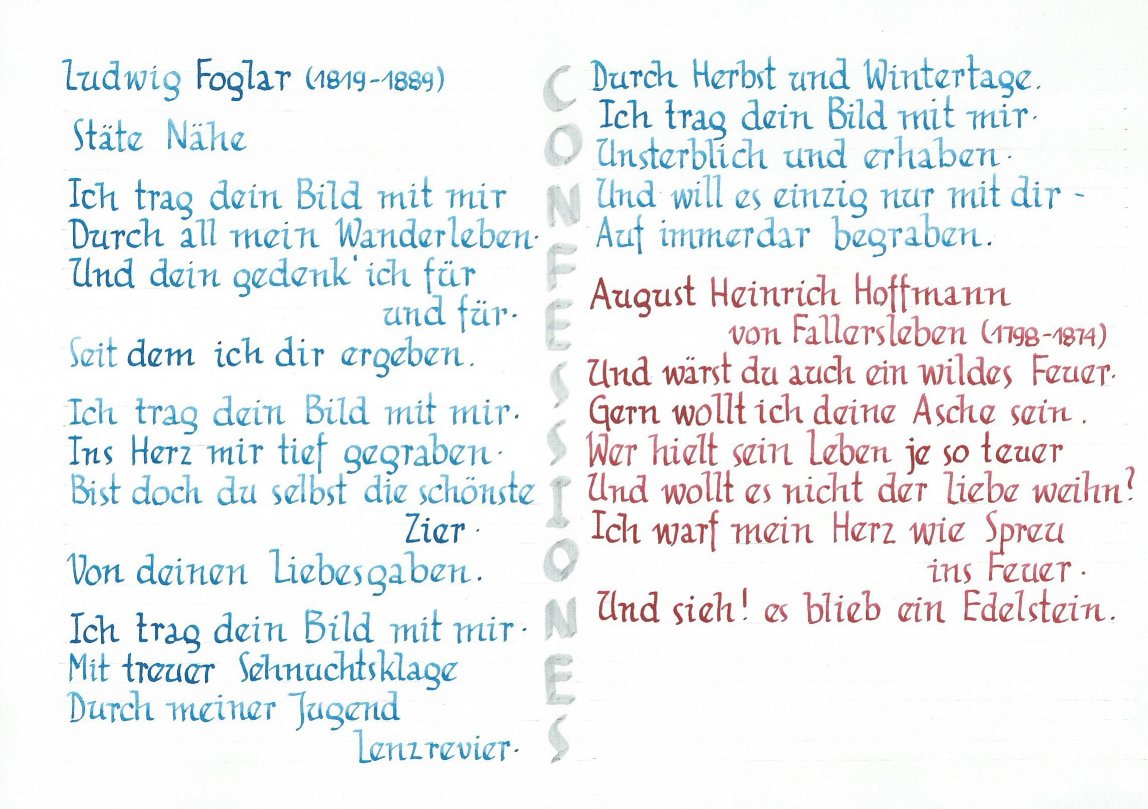 Ludwig Foglar (1819-1889)
Stäte Nähe
Ich trag dein Bild mit mir
Durch all mein Wanderleben.
Und dein gedenk' ich für
und für.
Seit dem ich dir ergeben.
Ich trag dein Bild mit mir.
Ins Herz mir tief gegraben.
Bist doch du selbst die schönste
Zier.
Von deinen Liebesgaben.
Ich trag dein Bild mit mir.
Mit treuer Sehnuchtsklage
Durch meiner Jugend
Lenzrevier.
CONFESSIONES
Durch Herbst und Wintertage.
Ich trag dein Bild mit mir.
Unsterblich und erhaben.
Und will es einzig nur mit dir -
Auf immerdar begraben.
August Heinrich Hoffmann
von Fallersleben (1798-1874)
Und wärst du auch ein wildes Feuer.
Gern wollt ich deine Asche sein.
Wer hielt sein Leben je so teuer
Und wollt es nicht der Liebe weihn?
Ich warf mein Herz wie Spreu
ins Feuer.
Und sieh! es blieb ein Edelstein.